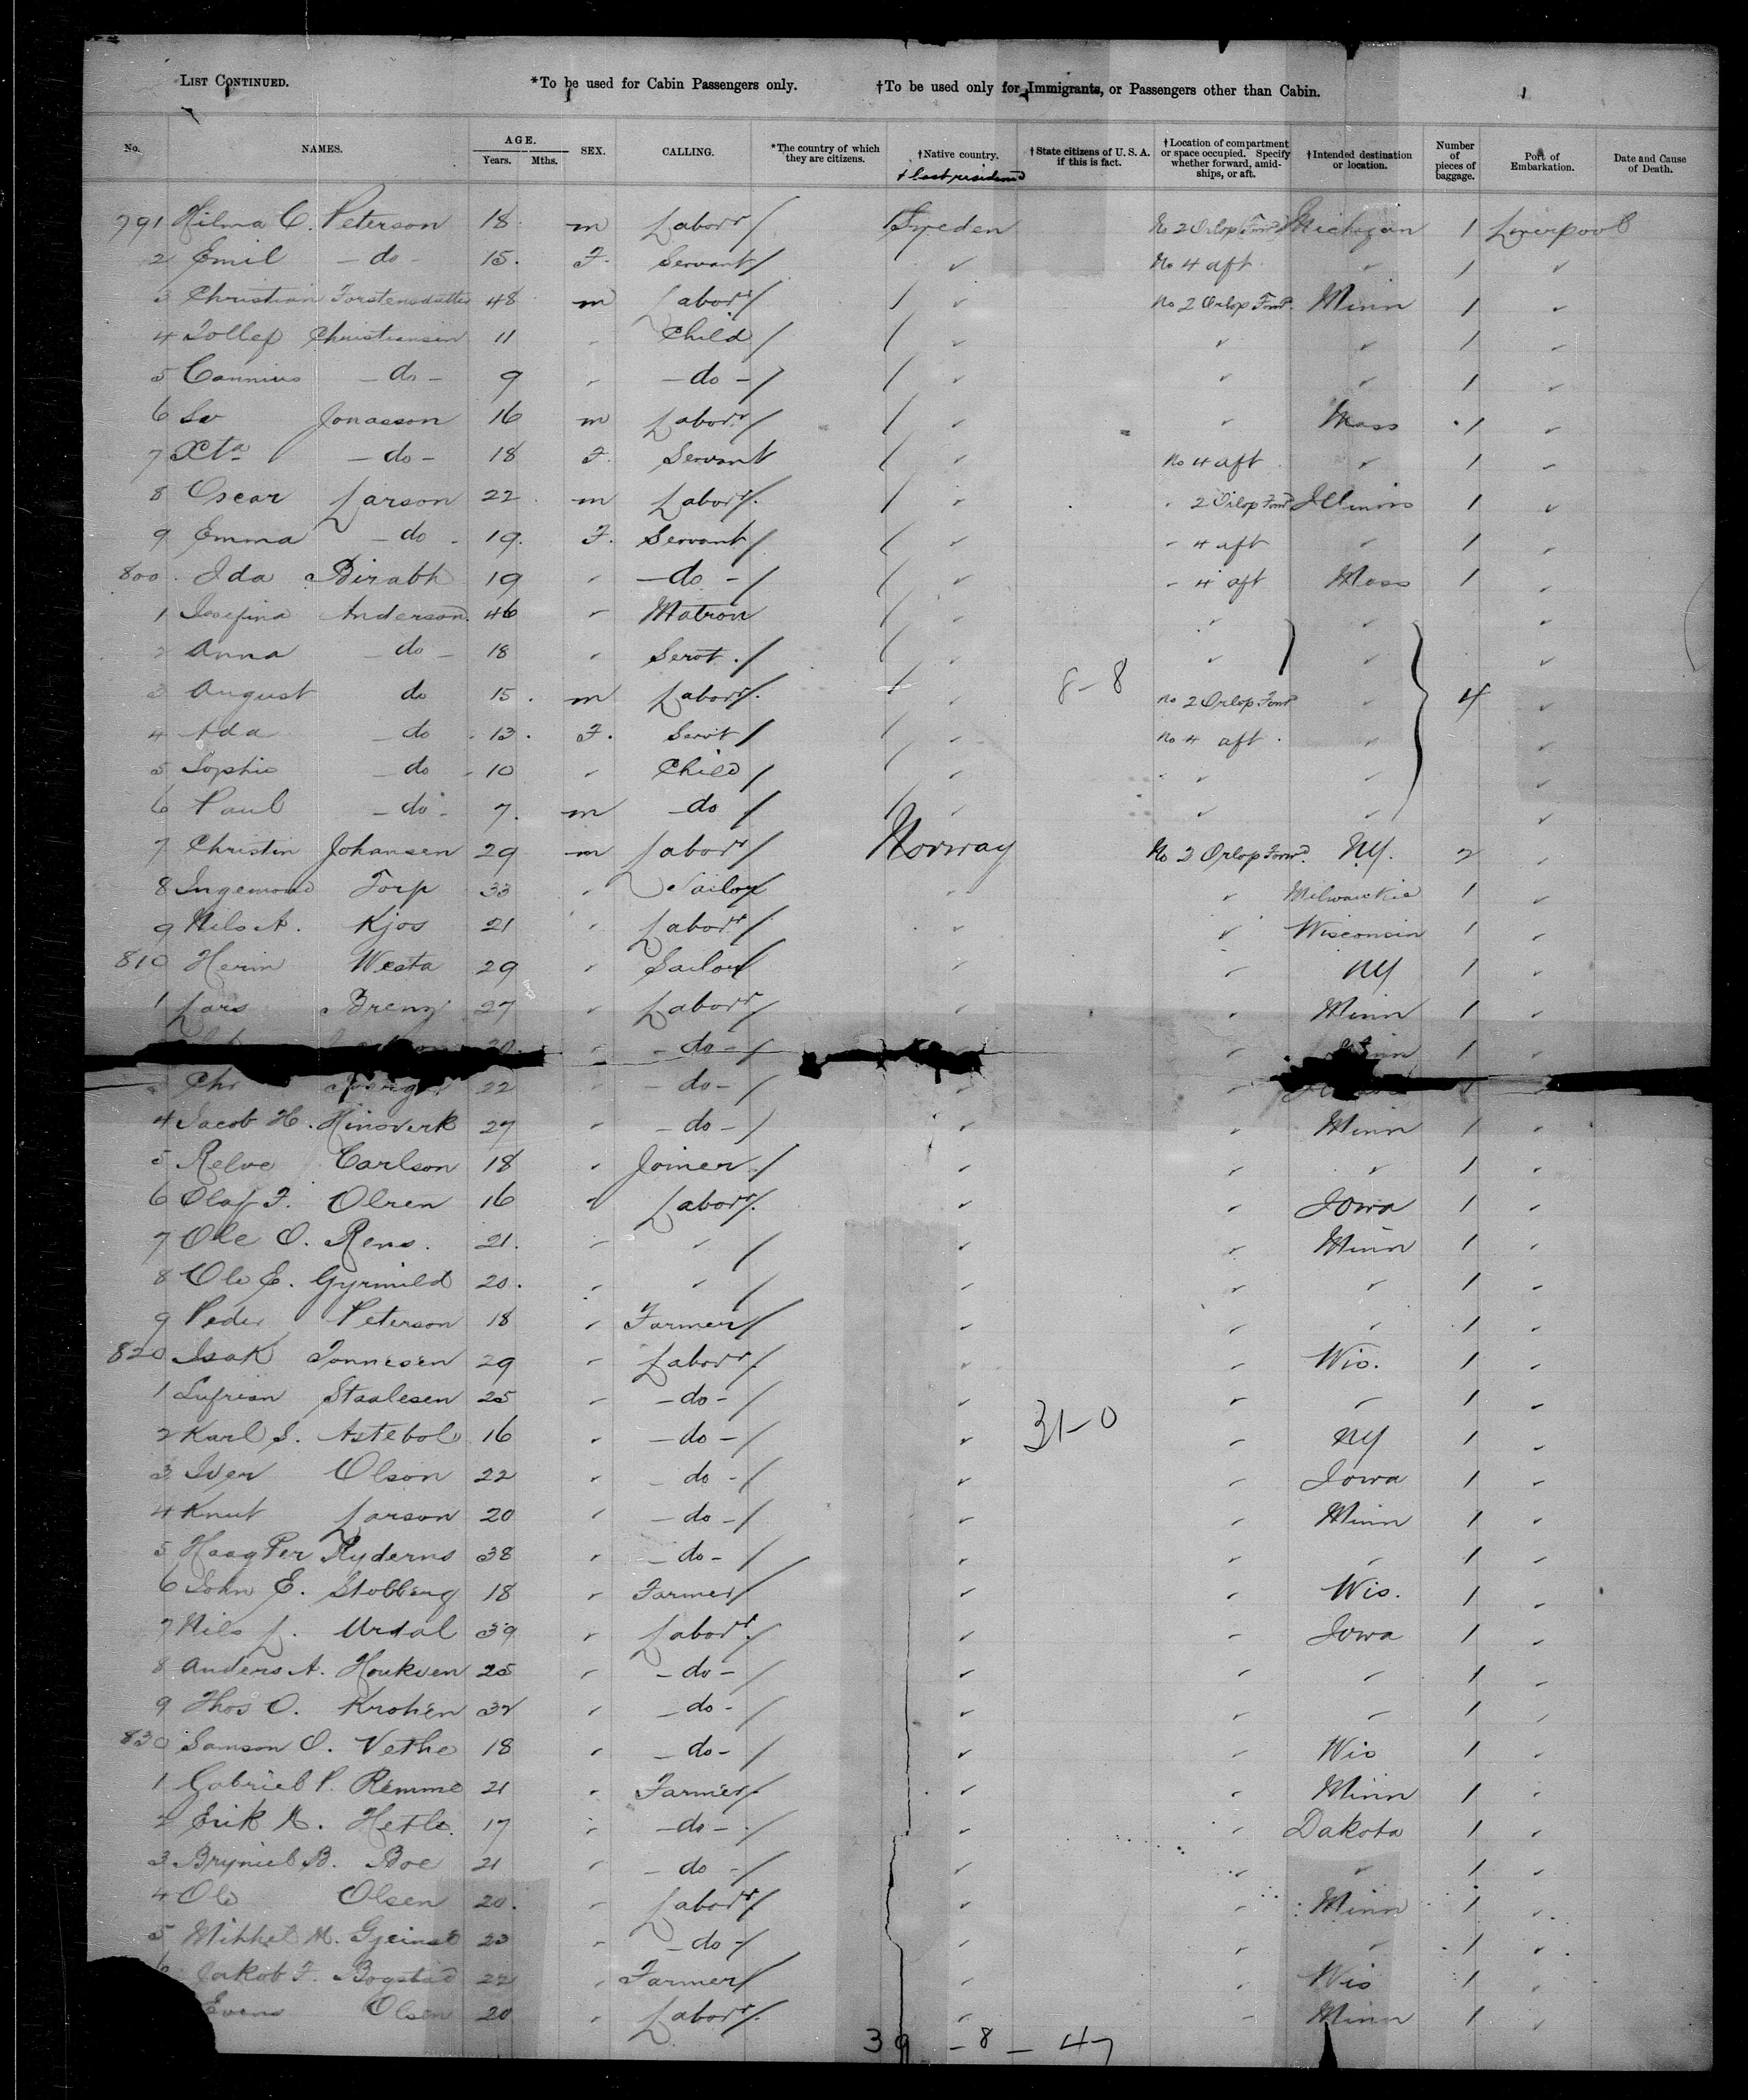 LIST CONTINUED. *To be used for Cabin Passengers only. †To be used only for Immigrants, or Passengers other than Cabin.
No. NAMES. AGE. Years. Mths. SEX. CALLING. *The country of which they are citizens. †Native country. † last residence †State citizens of U. S. A. if this is fact. †Location of compartment or space occupied. Specify whether forward, amidships, or aft. †Intended destination or location. Number of pieces of baggage. Port of Embarkation. Date and Cause of Death.
791 Hilma C. Peterson 18 m Labor / Sweden No 2 Orlop Forwd Michigan 1 Liverpool
2 Emil - do - 15. F. Servant / ✓ No 4 aft ✓ 1 ✓
3 Christian Torstensdatter 48 m Labor / ✓ No 2 Orlop Forwd. Minn 1 ✓
4 Tollef Christiansen 11 Child / ✓ ✓ ✓ 1 ✓
5 - do - 9 - do - / ✓ ✓ ✓ 1 ✓
6 Sv Jonasson 16 m Labor / ✓ ✓ Mass 1 ✓
7 Xta - do - 18 F. Servant ✓ No 4 aft ✓ 1 ✓
8 Oscar Larson 22 m Labor / ✓ 2 Orlop Forwd Illinois 1 ✓
9 Emma - do - 19. F. Servant / ✓ 4 aft ✓ 1 ✓
800 Ida 19 - do - / ✓ 4 aft Mass 1 ✓
1 Josefina Anderson 46 Matron ✓ ✓ ✓ ✓
2 Anna - do - 18 Servt. / ✓ ✓ ✓ ✓
3 August do 15. m Labor / ✓ 8-8 No 2 Orlop Forwd ✓ 4 ✓
4 Ada - do - 13. F. Servt / ✓ No 4 aft. ✓ ✓
5 Sophie - do - 10 Child / ✓ ✓ ✓ ✓
6 Paul - do - 7. m - do / ✓ ✓ ✓ ✓
7 Christin Johansen 29 m Labor / Norway No 2 Orlop Forwd. NY. 2 ✓
8 Ingemond Torp 33 Sailor ✓ ✓ Milwaukie 1 ✓
9 Nils A. Kjos 21 Labor / ✓ ✓ Wisconsin 1 ✓
810 Westa 29 Sailor ✓ ✓ NY 1 ✓
1 Lars 27 Labor / ✓ Minn 1 ✓
- do - / ✓ Minn 1 ✓
Chr 22 - do - / ✓ 1
4 Jacob H. Hinsverk 27 - do - / ✓ ✓ Minn 1 ✓
5 Carlson 18 Joiner / ✓ ✓ ✓ 1 ✓
6 Olaf F. Olsen 16 Labor / ✓ ✓ Iowa 1 ✓
7 Ole O. Rens. 21. ✓ / ✓ ✓ Minn 1 ✓
8 Ole E. Gyrmild 20. ✓ / ✓ ✓ ✓ 1 ✓
9 Peder Peterson 18 Farmer / ✓ ✓ ✓ 1 ✓
820 Isak Tonnesen 29 Labor / ✓ ✓ Wis. 1 ✓
1 Staalesen 25 - do - / ✓ ✓ ✓ 1 ✓
2 Karl S. Astebol 16 - do - / ✓ 31-0 ✓ NY 1 ✓
3 Iver Olson 22 - do - / ✓ ✓ Iowa 1 ✓
4 Knut Larson 20 - do - / ✓ ✓ Minn 1 ✓
5 Haag Per Ryderns 38 - do - / ✓ ✓ ✓ 1 ✓
6 John E. Stobberg 18 Farmer / ✓ ✓ Wis. 1 ✓
7 Nils L. Urdal 39 Labor / ✓ ✓ Iowa 1 ✓
8 Anders A. Houkven 25 - do - / ✓ ✓ ✓ 1 ✓
9 Thos O. Krohen 32 - do - / ✓ ✓ ✓ 1 ✓
830 Samson O. Vethe 18 - do - / ✓ ✓ Wis 1 ✓
1 Gabriel P. Remme 21 Farmer / ✓ ✓ Minn 1 ✓
2 Erik N. Hetle. 17 - do - / ✓ ✓ Dakota 1 ✓
3 Bryniel B. Boe 21 - do - / ✓ ✓ ✓ 1 ✓
4 Ole Olsen 20. Labor / ✓ ✓ Minn 1 ✓
5 Mikkel M. 23 - do - / ✓ ✓ ✓ 1 ✓
Jakob F. Bogstad 22 Farmer / ✓ ✓ Wis 1 ✓
Evans Olsen 20 Labor / ✓ Minn 1 ✓
39 - 8 - 47